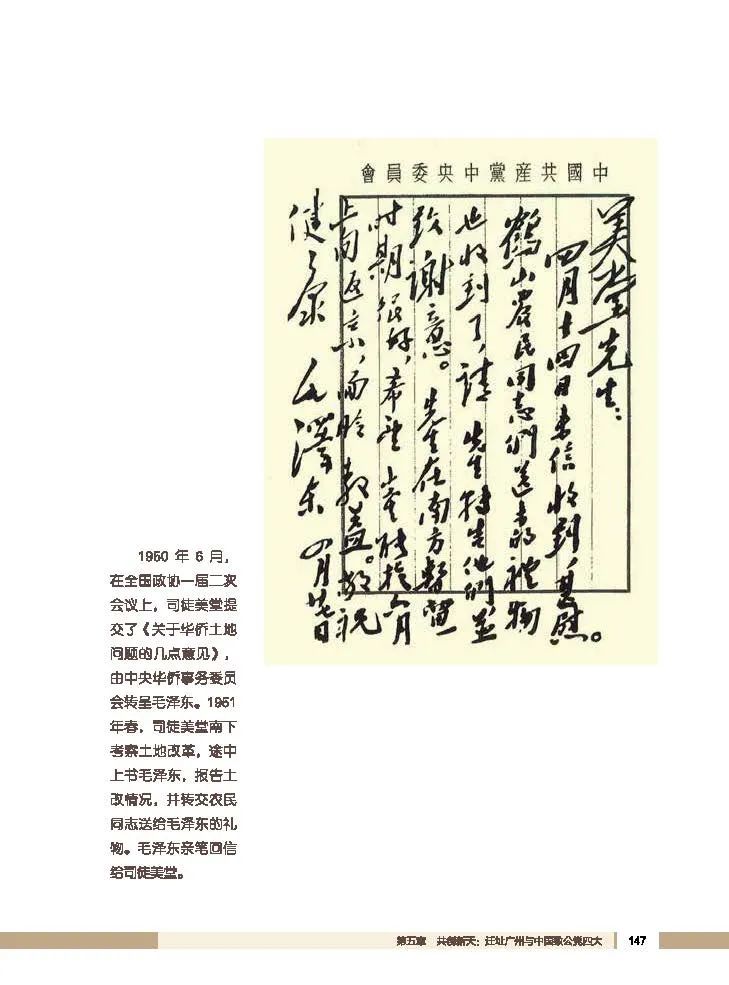 中國共産黨中央委員會
美堂先生：
四月十四日来信收到，甚慰。
鶴山農民同志們送来的禮物
也收到了，請 先生轉告他們並
致謝意。 先生在南方暫留一
时期很好，希望 能於六月
上旬返京，面聆教益。敬祝
健康 毛澤东 四月廿七日
1950 年 6 月，
在全国政协一届二次
会议上，司徒美堂提
交了《关于华侨土地
问题的几点意见》，
由中央华侨事务委员
会转呈毛泽东。1951
年春，司徒美堂南下
考察土地改革，途中
上书毛泽东，报告土
改情况，并转交农民
同志送给毛泽东的礼
物。毛泽东亲笔回信
给司徒美堂。
第五章 共创新天：迁址广州与中国致公党四大 147